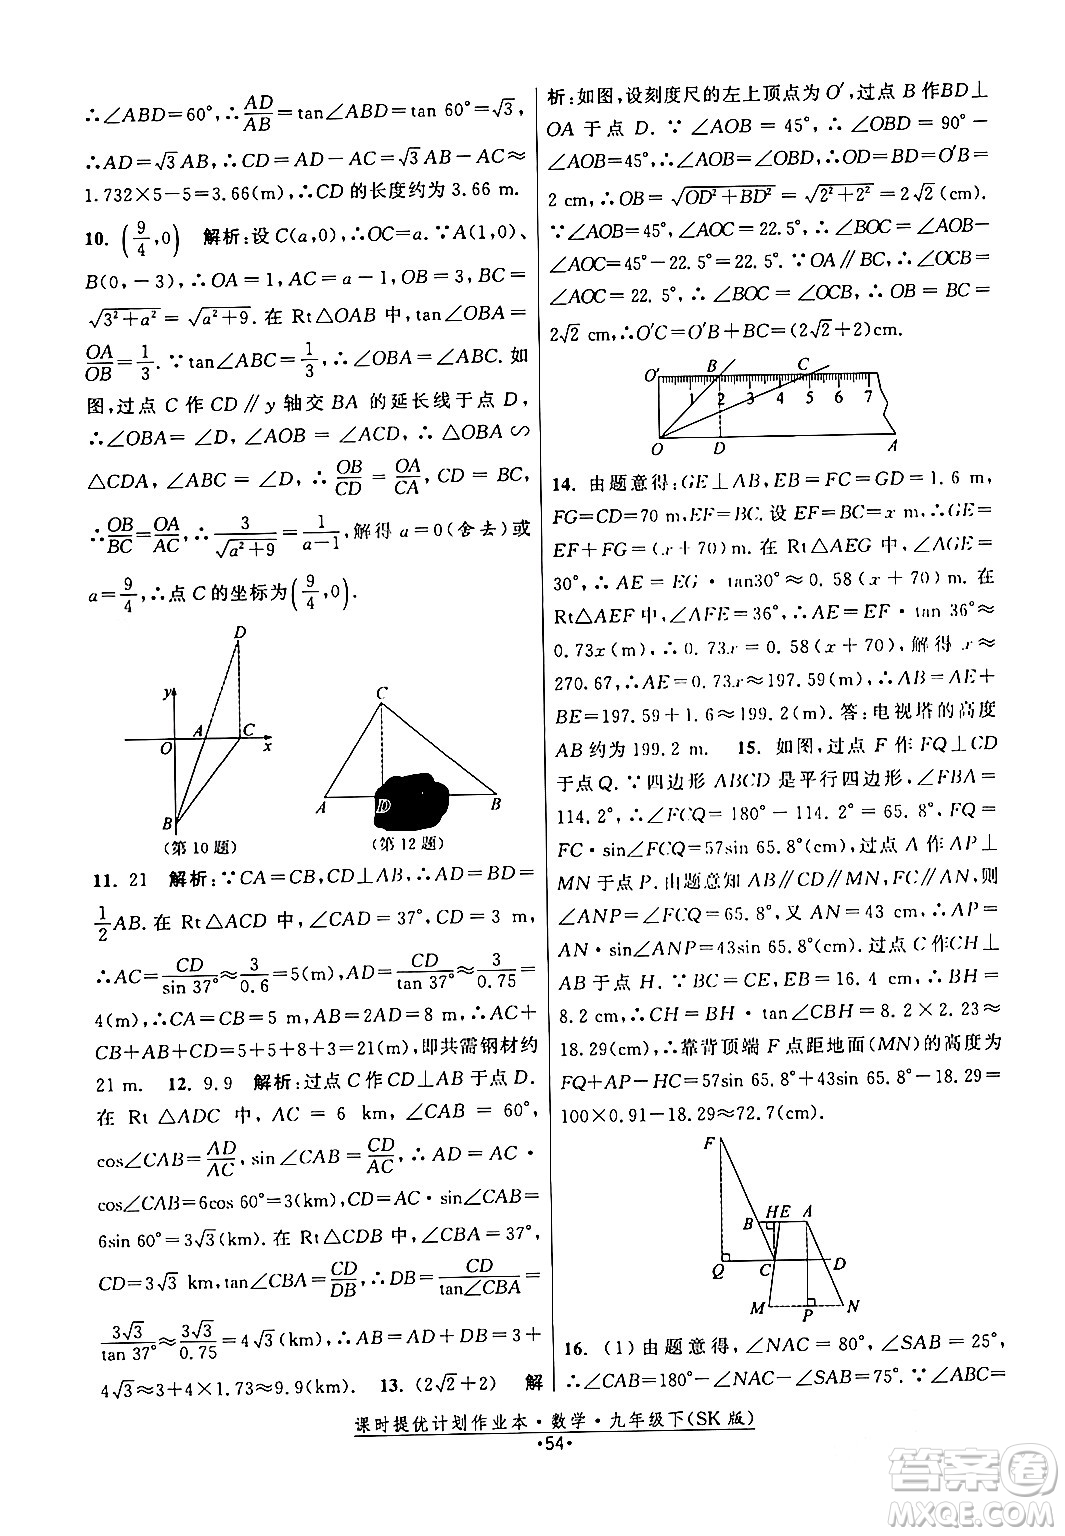 ∴∠ABD=60°,∴AD/AB=tan∠ABD=tan 60°=√3,
∴AD=√3AB,∴CD=AD-AC=√3AB-AC≈
1.732×5-5=3.66(m),∴CD的长度约为3.66 m.
10. (9/4,0) 解析:设C(a,0),∴OC=a.∵A(1,0)、
B(0,-3),∴OA=1,AC=a-1,OB=3,BC=
√(3²+a²)=√(a²+9).在Rt△OAB中,tan∠OBA=
OA/OB=1/3.∵tan∠ABC=1/3,∴∠OBA=∠ABC.如
图,过点C作CD∥y轴交BA的延长线于点D,
∴∠OBA=∠D,∠AOB=∠ACD,∴△OBA∽
△CDA,∠ABC=∠D,∴OB/CD=OA/CA,CD=BC,
∴OB/BC=OA/AC,∴3/√(a²+9)=1/(a-1),解得a=0(舍去)或
a=9/4,∴点C的坐标为(9/4,0).
D
y
O A C x
B
(第10题)
C
A D B
(第12题)
11. 21 解析:∵CA=CB,CD⊥AB,∴AD=BD=
1/2AB.在Rt△ACD中,∠CAD=37°,CD=3 m,
∴AC=CD/sin 37°≈3/0.6=5(m),AD=CD/tan 37°≈3/0.75=
4(m),∴CA=CB=5 m,AB=2AD=8 m,∴AC+
CB+AB+CD=5+5+8+3=21(m),即共需钢材约
21 m. 12. 9.9 解析:过点C作CD⊥AB于点D.
在Rt△ADC中,AC=6 km,∠CAB=60°,
cos∠CAB=AD/AC,sin∠CAB=CD/AC,∴AD=AC·
cos∠CAB=6cos 60°=3(km),CD=AC·sin∠CAB=
6sin 60°=3√3(km).在Rt△CDB中,∠CBA=37°,
CD=3√3 km,tan∠CBA=CD/DB,∴DB=CD/tan∠CBA=
3√3/tan 37°≈3√3/0.75=4√3(km),∴AB=AD+DB=3+
4√3≈3+4×1.73≈9.9(km). 13. (2√2+2) 解
析:如图,设刻度尺的左上顶点为O′,过点B作BD⊥
OA于点D.∵∠AOB=45°,∴∠OBD=90°-
∠AOB=45°,∴∠AOB=∠OBD,∴OD=BD=O′B=
2 cm,∴OB=√(OD²+BD²)=√(2²+2²)=2√2(cm).
∵∠AOB=45°,∠AOC=22.5°,∴∠BOC=∠AOB-
∠AOC=45°-22.5°=22.5°.∵OA∥BC,∴∠OCB=
∠AOC=22.5°,∴∠BOC=∠OCB,∴OB=BC=
2√2 cm,∴O′C=O′B+BC=(2√2+2)cm.
O′ B C
1 2 3 4 5 6 7
O D A
14. 由题意得:GE⊥AB,EB=FC=GD=1.6 m,
FG=CD=70 m,EF=BC.设EF=BC=x m,∴GE=
EF+FG=(x+70)m.在Rt△AEG中,∠AGE=
30°,∴AE=EG·tan30°≈0.58(x+70)m.在
Rt△AEF中,∠AFE=36°,∴AE=EF·tan 36°≈
0.73x(m),∴0.73x=0.58(x+70),解得x≈
270.67,∴AE=0.73x≈197.59(m),∴AB=AE+
BE=197.59+1.6≈199.2(m).答:电视塔的高度
AB约为199.2 m. 15. 如图,过点F作FQ⊥CD
于点Q.∵四边形ABCD是平行四边形,∠FBA=
114.2°,∴∠FCQ=180°-114.2°=65.8°,FQ=
FC·sin∠FCQ=57sin 65.8°(cm),过点A作AP⊥
MN于点P.由题意知AB∥CD∥MN,FC∥AN,则
∠ANP=∠FCQ=65.8°,又AN=43 cm,∴AP=
AN·sin∠ANP=43sin 65.8°(cm).过点C作CH⊥
AB于点H.∵BC=CE,EB=16.4 cm,∴BH=
8.2 cm,∴CH=BH·tan∠CBH=8.2×2.23≈
18.29(cm),∴靠背顶端F点距地面(MN)的高度为
FQ+AP-HC=57sin 65.8°+43sin 65.8°-18.29≈
100×0.91-18.29≈72.7(cm).
F
B H E A
Q C D
M P N
16. (1)由题意得,∠NAC=80°,∠SAB=25°,
∴∠CAB=180°-∠NAC-∠SAB=75°.∵∠ABC=
课时提优计划作业本·数学·九年级下(SK版)
·54·
答案圈
MXQE.COM